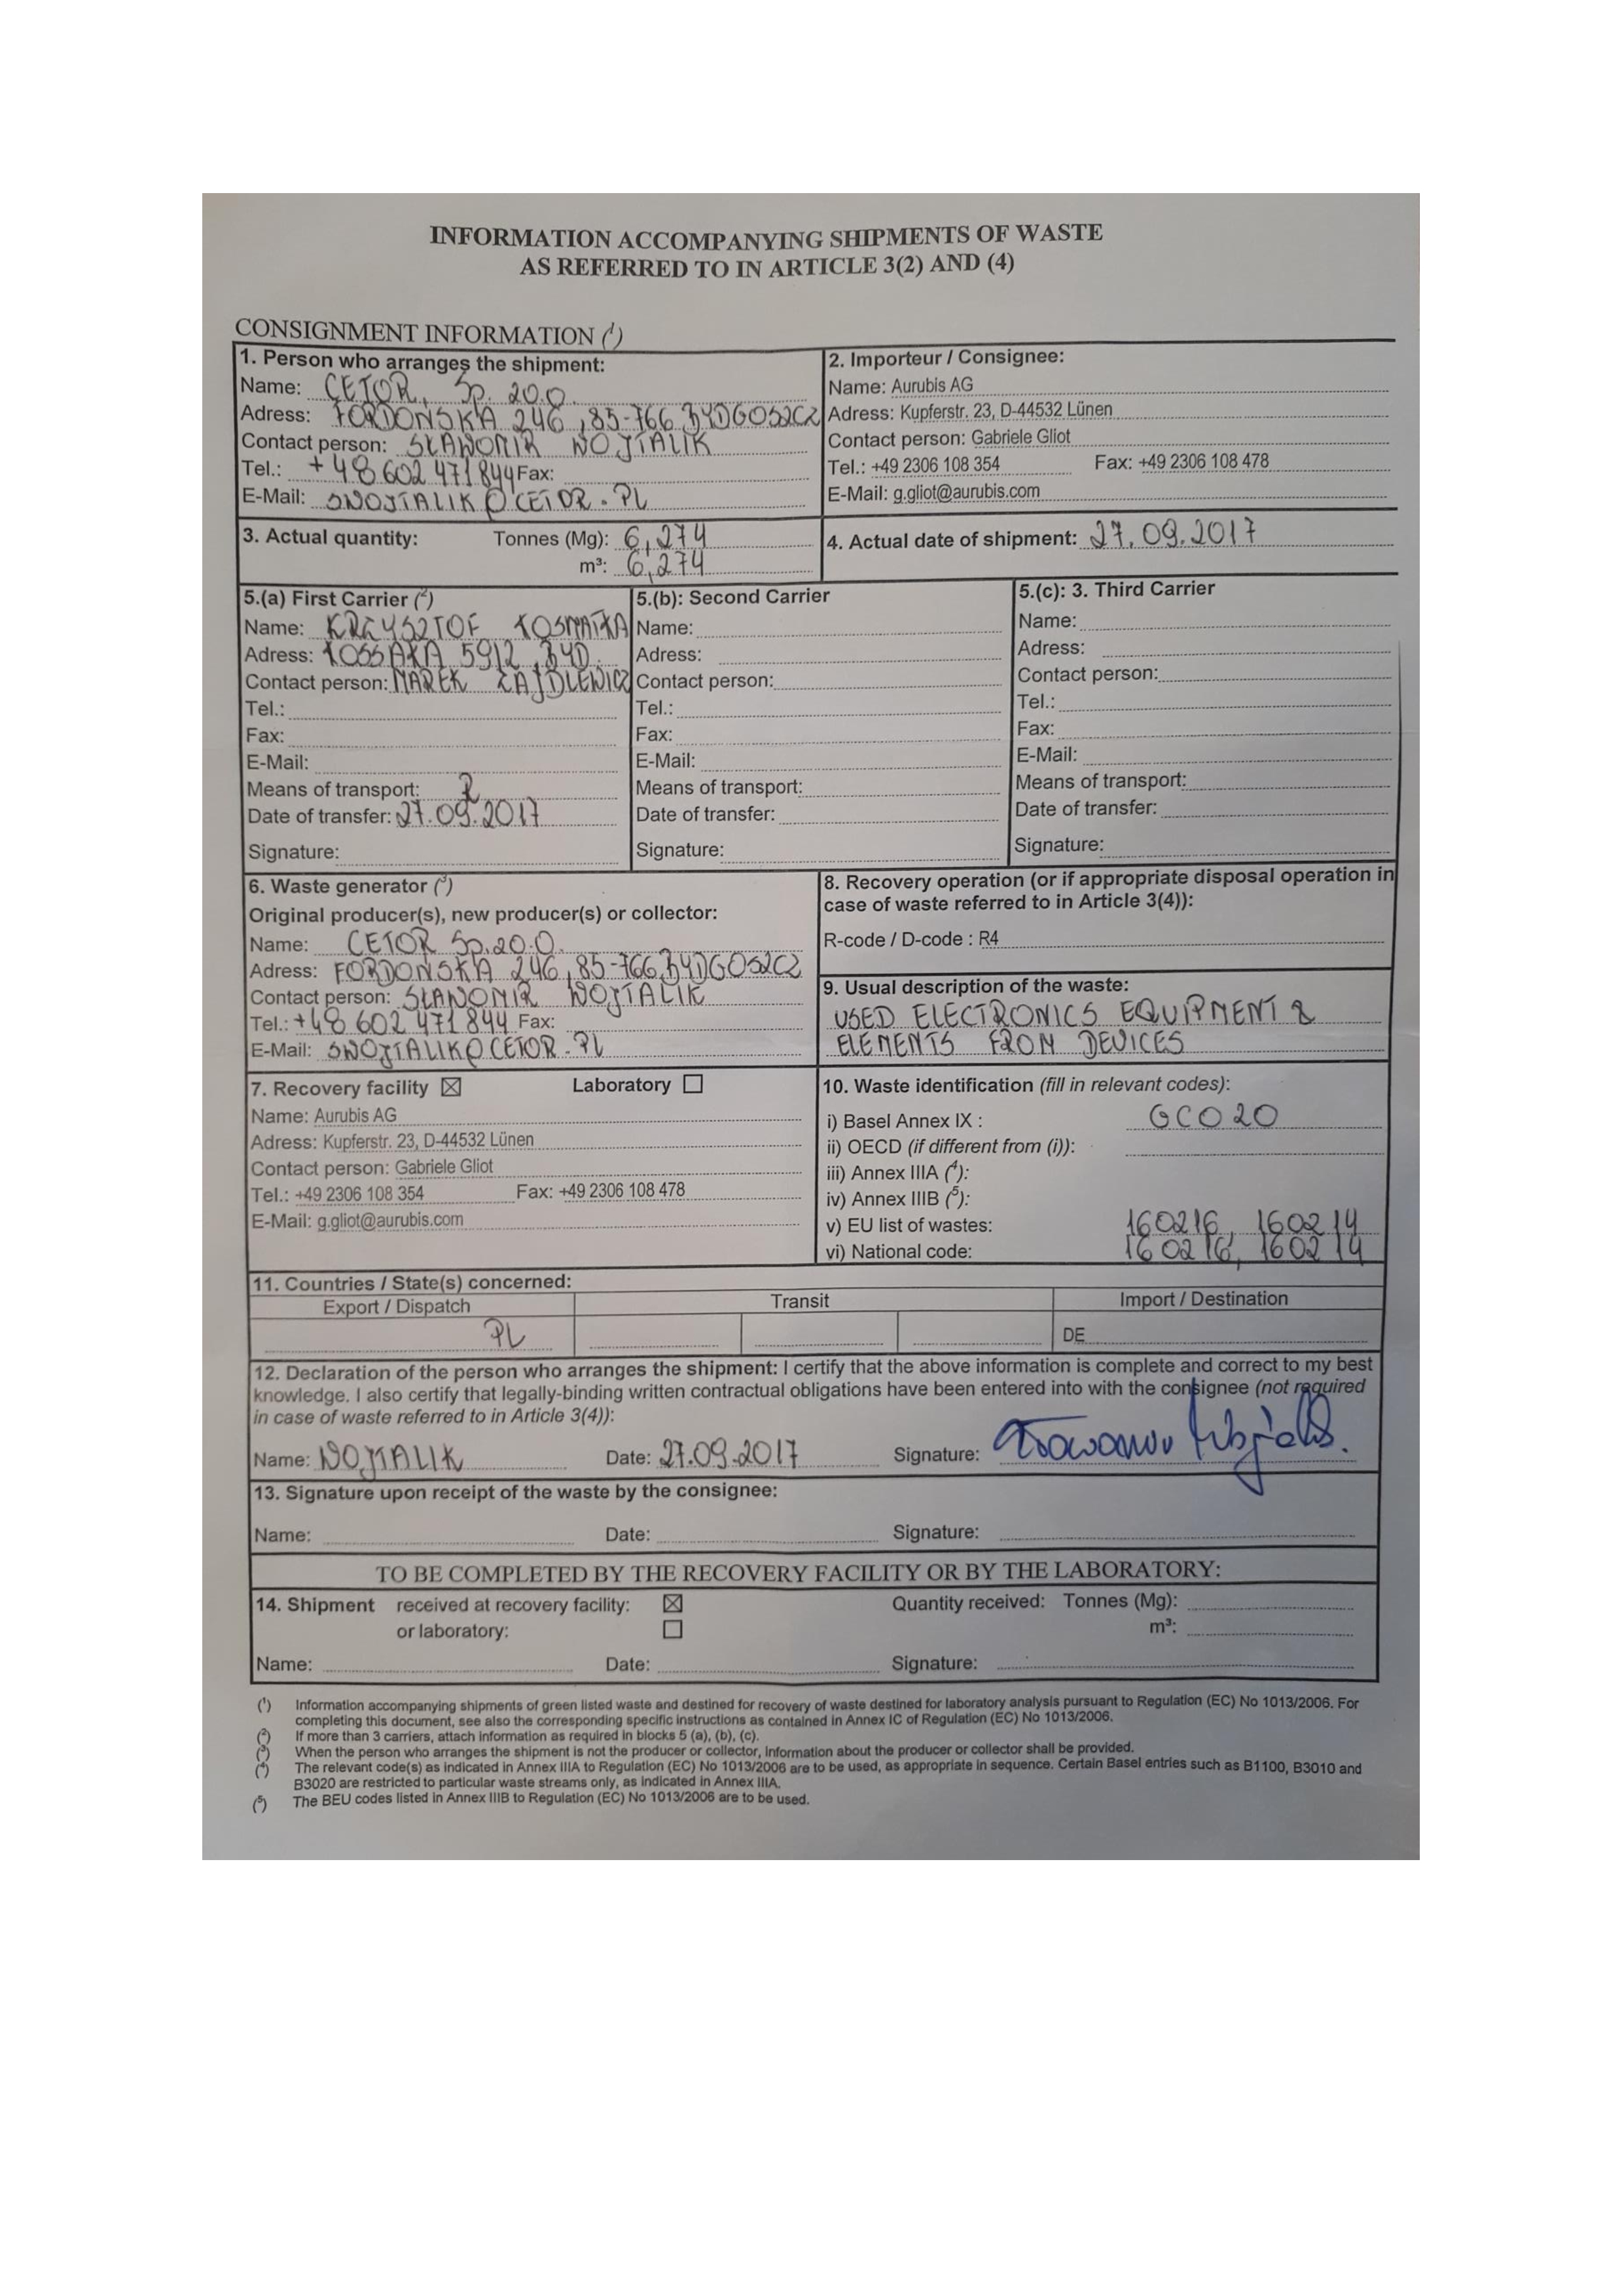 INFORMATION ACCOMPANYING SHIPMENTS OF WASTE
AS REFERRED TO IN ARTICLE 3(2) AND (4)
CONSIGNMENT INFORMATION (1)
1. Person who arranges the shipment:
Name: CETOR, Sp. zo.o.
Adress: FORDOŃSKA 246, 85-766 BYDGOSZCZ
Contact person: SŁAWOMIR WOJTALIK
Tel.: +48 602 471 844 Fax:
E-Mail: SWOJTALIK@CETOR.PL
2. Importeur / Consignee:
Name: Aurubis AG
Adress: Kupferstr. 23, D-44532 Lünen
Contact person: Gabriele Gliot
Tel.: +49 2306 108 354 Fax: +49 2306 108 478
E-Mail: g.gliot@aurubis.com
3. Actual quantity: Tonnes (Mg): 6,274
m³: 6,274
4. Actual date of shipment: 27.09.2017
5.(a) First Carrier (2)
Name: KRZYSZTOF KOSMATKA
Adress: KOSSAKA 59/2, BYD.
Contact person: MAREK
Tel.:
Fax:
E-Mail:
Means of transport: R
Date of transfer: 27.09.2017
Signature:
5.(b): Second Carrier
Name:
Adress:
Contact person:
Tel.:
Fax:
E-Mail:
Means of transport:
Date of transfer:
Signature:
5.(c): 3. Third Carrier
Name:
Adress:
Contact person:
Tel.:
Fax:
E-Mail:
Means of transport:
Date of transfer:
Signature:
6. Waste generator (3)
Original producer(s), new producer(s) or collector:
Name: CETOR Sp. zo.o.
Adress: FORDOŃSKA 246, 85-766 BYDGOSZCZ
Contact person: SŁAWOMIR WOJTALIK
Tel.: +48 602 471 844 Fax:
E-Mail: SWOJTALIK@CETOR.PL
8. Recovery operation (or if appropriate disposal operation in
case of waste referred to in Article 3(4)):
R-code / D-code : R4
9. Usual description of the waste:
USED ELECTRONICS EQUIPMENT &
ELEMENTS FROM DEVICES
7. Recovery facility ☒ Laboratory ☐
Name: Aurubis AG
Adress: Kupferstr. 23, D-44532 Lünen
Contact person: Gabriele Gliot
Tel.: +49 2306 108 354 Fax: +49 2306 108 478
E-Mail: g.gliot@aurubis.com
10. Waste identification (fill in relevant codes):
i) Basel Annex IX : GC020
ii) OECD (if different from (i)):
iii) Annex IIIA (4):
iv) Annex IIIB (5):
v) EU list of wastes: 160216, 160214
vi) National code: 160216, 160214
11. Countries / State(s) concerned:
Export / Dispatch Transit Import / Destination
PL DE
12. Declaration of the person who arranges the shipment: I certify that the above information is complete and correct to my best
knowledge. I also certify that legally-binding written contractual obligations have been entered into with the consignee (not required
in case of waste referred to in Article 3(4)):
Name: WOJTALIK Date: 27.09.2017 Signature:
13. Signature upon receipt of the waste by the consignee:
Name: Date: Signature:
TO BE COMPLETED BY THE RECOVERY FACILITY OR BY THE LABORATORY:
14. Shipment received at recovery facility: ☒ Quantity received: Tonnes (Mg):
or laboratory: ☐ m³:
Name: Date: Signature:
(1) Information accompanying shipments of green listed waste and destined for recovery of waste destined for laboratory analysis pursuant to Regulation (EC) No 1013/2006. For
completing this document, see also the corresponding specific instructions as contained in Annex IC of Regulation (EC) No 1013/2006.
(2) If more than 3 carriers, attach information as required in blocks 5 (a), (b), (c).
(3) When the person who arranges the shipment is not the producer or collector, information about the producer or collector shall be provided.
(4) The relevant code(s) as indicated in Annex IIIA to Regulation (EC) No 1013/2006 are to be used, as appropriate in sequence. Certain Basel entries such as B1100, B3010 and
B3020 are restricted to particular waste streams only, as indicated in Annex IIIA.
(5) The BEU codes listed in Annex IIIB to Regulation (EC) No 1013/2006 are to be used.